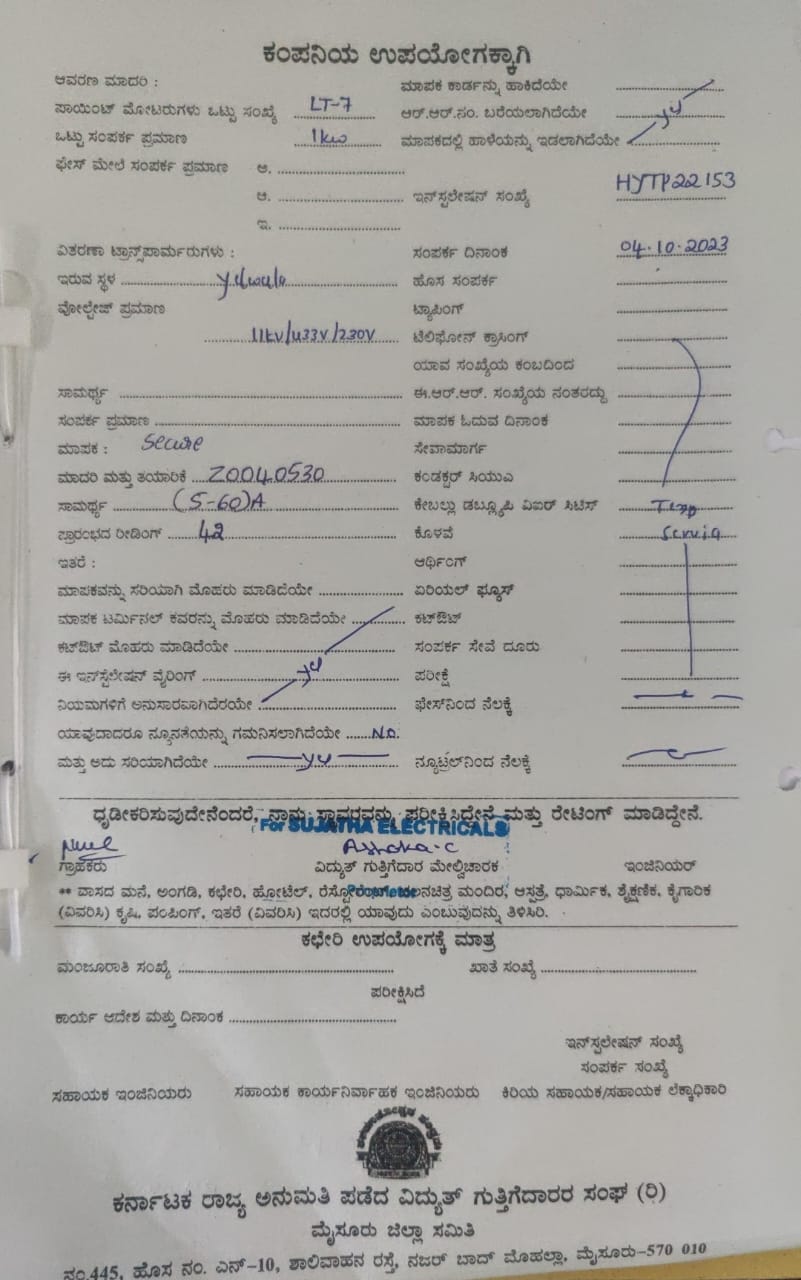 ಕಂಪನಿಯ ಉಪಯೋಗಕ್ಕಾಗಿ
ಆವರಣ ಮಾದರಿ : ಮಾಪಕ ಕಾರ್ಡನ್ನು ಹಾಕಿದೆಯೇ
ಪಾಯಿಂಟ್ ಮೋಟರುಗಳು ಒಟ್ಟು ಸಂಖ್ಯೆ LT-7 ಆರ್.ಆರ್.ನಂ. ಬರೆಯಲಾಗಿದೆಯೇ
ಒಟ್ಟು ಸಂಪರ್ಕ ಪ್ರಮಾಣ 1kw ಮಾಪಕದಲ್ಲಿ ಹಾಳೆಯನ್ನು ಇಡಲಾಗಿದೆಯೇ
ಫೇಸ್ ಮೇಲೆ ಸಂಪರ್ಕ ಪ್ರಮಾಣ ಅ.
ಆ. ಇನ್‌ಸ್ಟಲೇಷನ್ ಸಂಖ್ಯೆ HYTP22153
ಇ.
ವಿತರಣಾ ಟ್ರಾನ್ಸ್‌ಪಾರ್ಮರುಗಳು : ಸಂಪರ್ಕ ದಿನಾಂಕ 04.10.2023
ಇರುವ ಸ್ಥಳ ಹೊಸ ಸಂಪರ್ಕ
ವೋಲ್ಟೇಜ್ ಪ್ರಮಾಣ ಟ್ಯಾಪಿಂಗ್
11kV/433V/230V ಟೆಲಿಫೋನ್ ಕ್ರಾಸಿಂಗ್
ಯಾವ ಸಂಖ್ಯೆಯ ಕಂಬದಿಂದ
ಸಾಮರ್ಥ್ಯ ಈ.ಆರ್.ಆರ್. ಸಂಖ್ಯೆಯ ನಂತರದ್ದು
ಸಂಪರ್ಕ ಪ್ರಮಾಣ ಮಾಪಕ ಓದುವ ದಿನಾಂಕ
ಮಾಪಕ : Secure ಸೇವಾಮಾರ್ಗ
ಮಾದರಿ ಮತ್ತು ತಯಾರಿಕೆ Z0040530 ಕಂಡಕ್ಟರ್ ಸಿಯುಎ
ಸಾಮರ್ಥ್ಯ (5-60)A ಕೇಬಲ್ಲು ಡಬ್ಲ್ಯೂಪಿ ವಿಐರ್ ಸಿಟಿಸ್ Temp
ಪ್ರಾರಂಭದ ರೀಡಿಂಗ್ 42 ಕೊಳವೆ Service
ಇತರೆ : ಆರ್ಥಿಂಗ್
ಮಾಪಕವನ್ನು ಸರಿಯಾಗಿ ಮೊಹರು ಮಾಡಿದೆಯೇ ಏರಿಯಲ್ ಫ್ಯೂಸ್
ಮಾಪಕ ಟರ್ಮಿನಲ್ ಕವರನ್ನು ಮೊಹರು ಮಾಡಿದೆಯೇ ಕಟ್‌ಔಟ್
ಕಟ್‌ಔಟ್ ಮೊಹರು ಮಾಡಿದೆಯೇ ಸಂಪರ್ಕ ಸೇವೆ ದೂರು
ಈ ಇನ್‌ಸ್ಟಲೇಷನ್ ವೈರಿಂಗ್ ಪರೀಕ್ಷೆ
ನಿಯಮಗಳಿಗೆ ಅನುಸಾರವಾಗಿದೆರಯೇ ಫೇಸ್‌ನಿಂದ ನೆಲಕ್ಕೆ
ಯಾವುದಾದರೂ ನ್ಯೂನತೆಯನ್ನು ಗಮನಿಸಲಾಗಿದೆಯೇ No.
ಮತ್ತು ಅದು ಸರಿಯಾಗಿದೆಯೇ ನ್ಯೂಟ್ರಲ್‌ನಿಂದ ನೆಲಕ್ಕೆ
ಧೃಡೀಕರಿಸುವುದೇನೆಂದರೆ, ನಾನು ಸ್ಥಾವರವನ್ನು ಪರೀಕ್ಷಿಸಿದ್ದೇನೆ ಮತ್ತು ರೇಟಿಂಗ್ ಮಾಡಿದ್ದೇನೆ.
For SUJATHA ELECTRICALS
Ashoka.C
ಗ್ರಾಹಕರು ವಿದ್ಯುತ್ ಗುತ್ತಿಗೆದಾರ ಮೇಲ್ವಿಚಾರಕ ಇಂಜಿನಿಯರ್
** ವಾಸದ ಮನೆ, ಅಂಗಡಿ, ಕಛೇರಿ, ಹೋಟೆಲ್, ಮಂದಿರ, ಆಸ್ಪತ್ರೆ, ಧಾರ್ಮಿಕ, ಶೈಕ್ಷಣಿಕ, ಕೈಗಾರಿಕ
(ವಿವರಿಸಿ) ಕೃಷಿ, ಪಂಪಿಂಗ್, ಇತರೆ (ವಿವರಿಸಿ) ಇದರಲ್ಲಿ ಯಾವುದು ಎಂಬುವುದನ್ನು ತಿಳಿಸಿರಿ.
ಕಛೇರಿ ಉಪಯೋಗಕ್ಕೆ ಮಾತ್ರ
ಮಂಜೂರಾತಿ ಸಂಖ್ಯೆ ಖಾತೆ ಸಂಖ್ಯೆ
ಪರೀಕ್ಷಿಸಿದೆ
ಕಾರ್ಯ ಆದೇಶ ಮತ್ತು ದಿನಾಂಕ
ಇನ್‌ಸ್ಟಲೇಷನ್ ಸಂಖ್ಯೆ
ಸಂಪರ್ಕ ಸಂಖ್ಯೆ
ಸಹಾಯಕ ಇಂಜಿನಿಯರು ಸಹಾಯಕ ಕಾರ್ಯನಿರ್ವಾಹಕ ಇಂಜಿನಿಯರು ಕಿರಿಯ ಸಹಾಯಕ/ಸಹಾಯಕ ಲೆಕ್ಕಾಧಿಕಾರಿ
ಕರ್ನಾಟಕ ರಾಜ್ಯ ಅನುಮತಿ ಪಡೆದ ವಿದ್ಯುತ್ ಗುತ್ತಿಗೆದಾರರ ಸಂಘ (ರಿ)
ಮೈಸೂರು ಜಿಲ್ಲಾ ಸಮಿತಿ
ನಂ.445, ಹೊಸ ನಂ. ಎನ್-10, ಶಾಲಿವಾಹನ ರಸ್ತೆ, ನಜರ್ ಬಾದ್ ಮೊಹಲ್ಲಾ, ಮೈಸೂರು-570 010